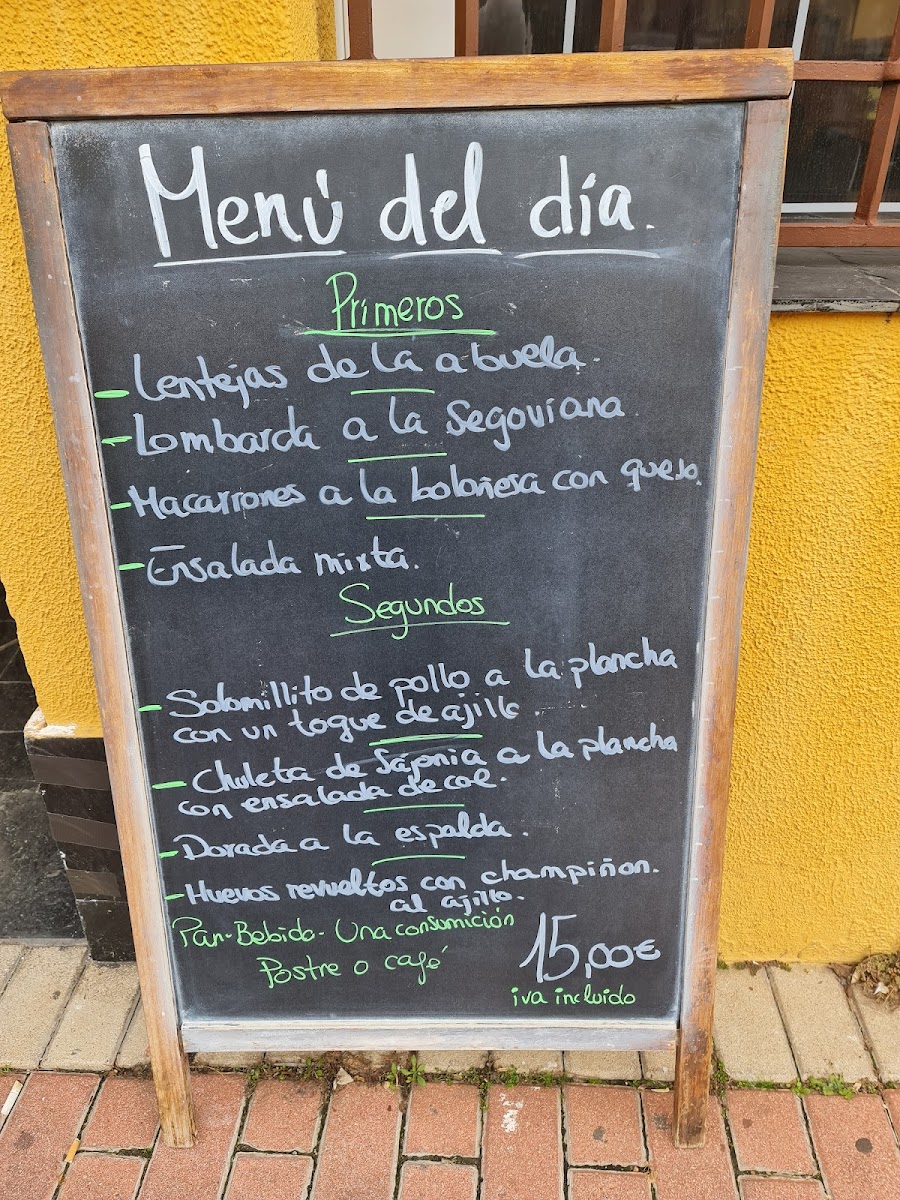 Menú del día.
Primeros
- Lentejas de la abuela.
- Lombarda a la Segoviana
- Macarrones a la boloñesa con queso.
- Ensalada mixta.
Segundos
- Solomillito de pollo a la plancha
con un toque de ajillo.
- Chuleta de Sajonia a la plancha
con ensalada de col.
- Dorada a la espalda.
- Huevos revueltos con champiñon.
al ajillo.
Pan - Bebida - Una consumición
Postre o café
15,00€
iva incluido